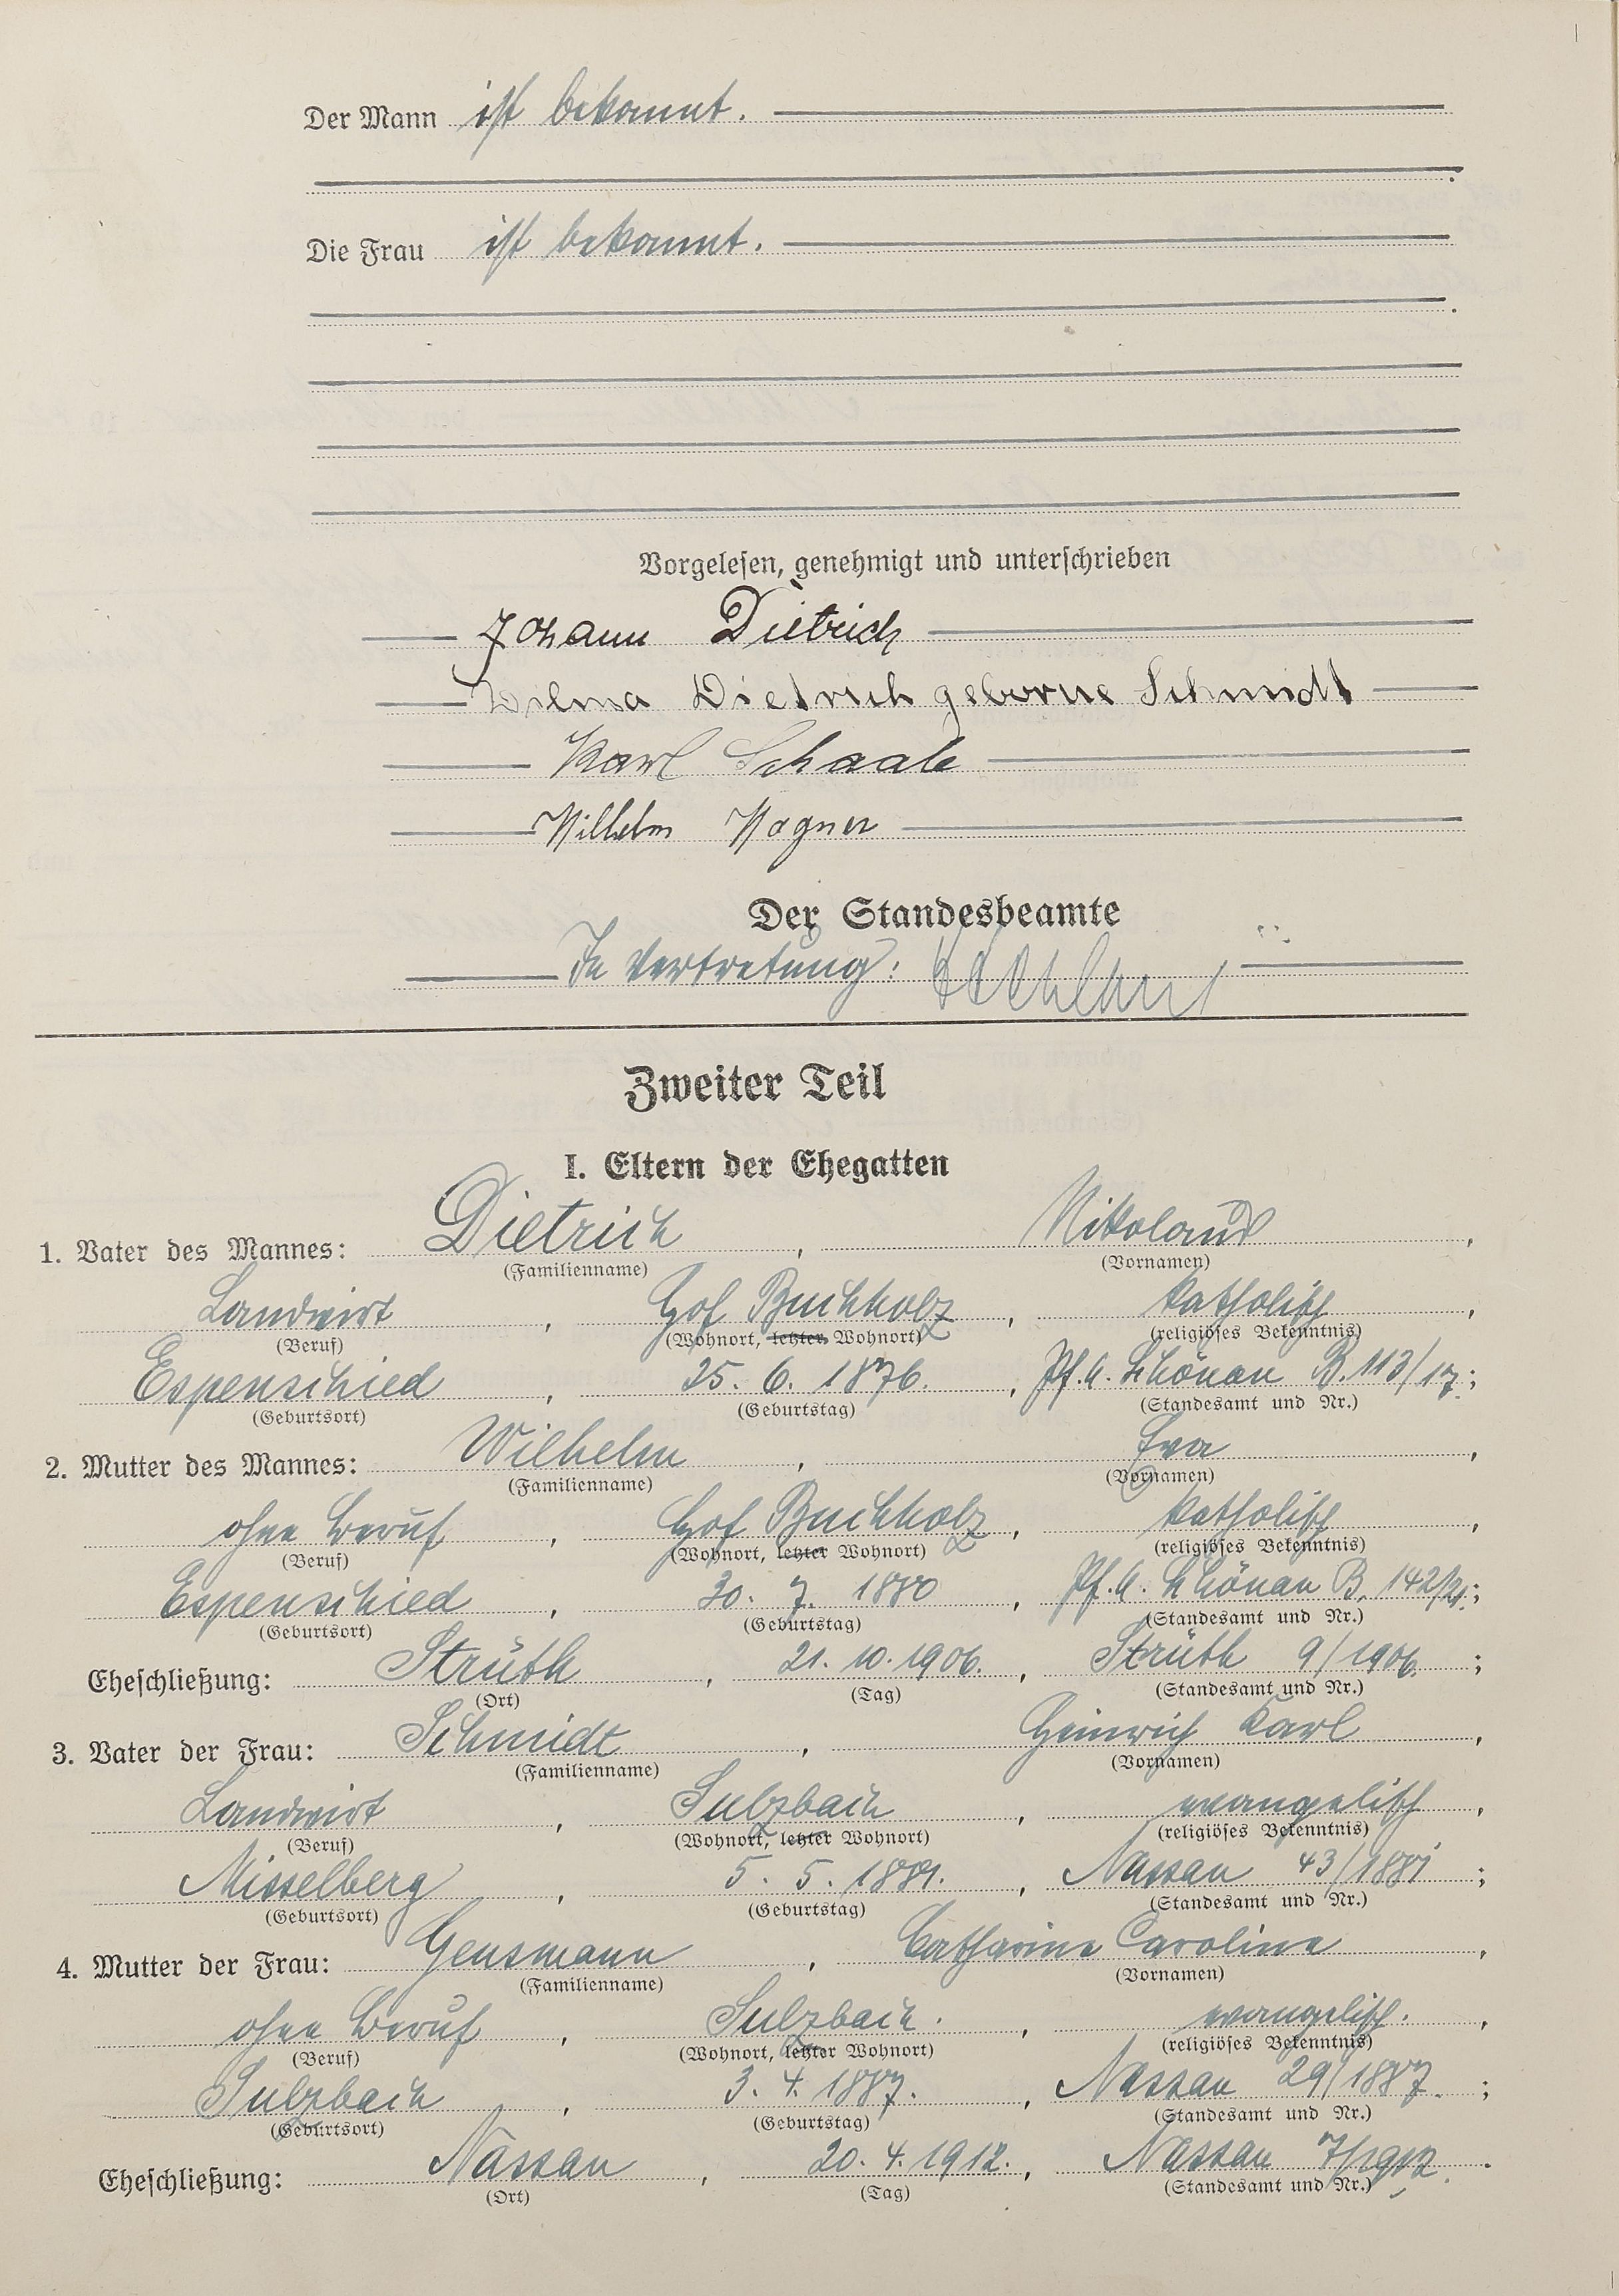 Der Mann ist bekannt.
Die Frau ist bekannt.
Vorgelesen, genehmigt und unterschrieben
Johann Dietrich
Wilma Dietrich geborne Schmidt
Karl Schaab
Wilhelm Wagner
Der Standesbeamte
In Vertretung:
Zweiter Teil
I. Eltern der Ehegatten
1. Vater des Mannes: Dietrich, Nikolaus,
(Familienname) (Vornamen)
Landwirt, Hof Buchholz, katholisch,
(Beruf) (Wohnort, letzter Wohnort) (religiöses Bekenntnis)
Espenschied, 25. 6. 1876., Pf.A. Schönau B. 113/17;
(Geburtsort) (Geburtstag) (Standesamt und Nr.)
2. Mutter des Mannes: Wilhelm, Eva,
(Familienname) (Vornamen)
ohne Beruf, Hof Buchholz, katholisch,
(Beruf) (Wohnort, letzter Wohnort) (religiöses Bekenntnis)
Espenschied, 30. 7. 1880, Pf.A. Schönau B. 142/21;
(Geburtsort) (Geburtstag) (Standesamt und Nr.)
Eheschließung: Strüth, 21. 10. 1906., Strüth 9/1906.;
(Ort) (Tag) (Standesamt und Nr.)
3. Vater der Frau: Schmidt, Heinrich Karl,
(Familienname) (Vornamen)
Landwirt, Sulzbach, evangelisch,
(Beruf) (Wohnort, letzter Wohnort) (religiöses Bekenntnis)
Misselberg, 5. 5. 1881., Nassau 43/1881;
(Geburtsort) (Geburtstag) (Standesamt und Nr.)
4. Mutter der Frau: Gensmann, Catharine Caroline,
(Familienname) (Vornamen)
ohne Beruf, Sulzbach., evangelisch.,
(Beruf) (Wohnort, letzter Wohnort) (religiöses Bekenntnis)
Sulzbach, 3. 4. 1887., Nassau 29/1887.;
(Geburtsort) (Geburtstag) (Standesamt und Nr.)
Eheschließung: Nassau, 20. 4. 1912., Nassau 7/1912.
(Ort) (Tag) (Standesamt und Nr.)